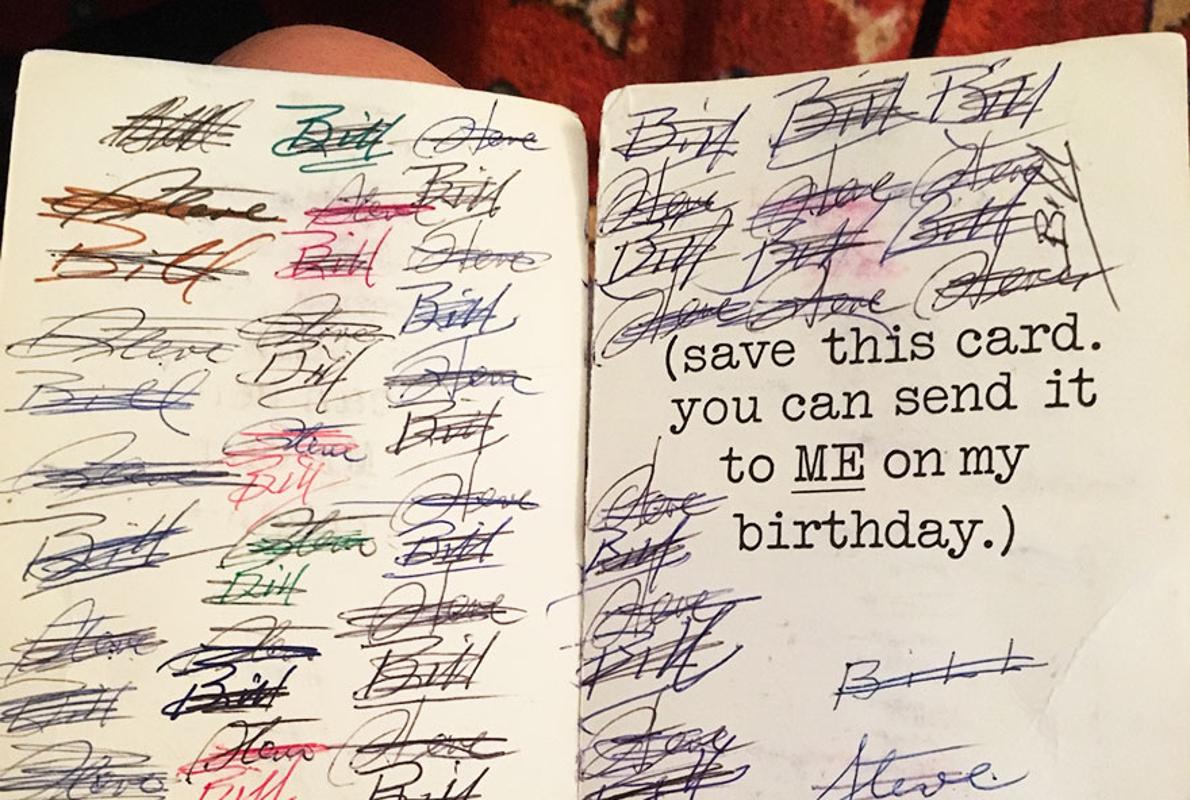 Bill Bill Steve
Steve Steve Bill
Bill Bill Steve
Steve Steve Bill
Bill Bill Steve
Steve Steve Bill
Bill Bill Steve
Steve Steve Bill
Bill Bill Steve
Steve Steve Bill
Bill Steve
Bill
Bill Bill Bill
Steve Steve Steve
Bill Bill Bill Bill
Steve Steve Steve
(save this card.
you can send it
to ME on my
birthday.)
Steve
Bill
Steve
Bill
Steve
Bill
Bill
Steve